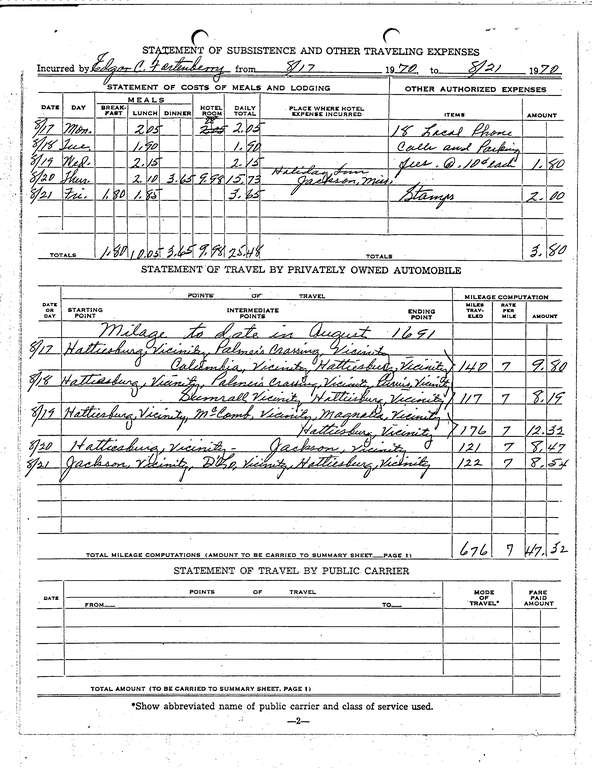 STATEMENT OF SUBSISTENCE AND OTHER TRAVELING EXPENSES
Incurred by Edgar C. Fortenberry from 8/17 1970 to 8/21 1970
STATEMENT OF COSTS OF MEALS AND LODGING OTHER AUTHORIZED EXPENSES
DATE DAY MEALS BREAKFAST LUNCH DINNER HOTEL ROOM DAILY TOTAL PLACE WHERE HOTEL EXPENSE INCURRED ITEMS AMOUNT
8/17 Mon. 2.05 2.05 18 Local Phone
8/18 Tue. 1.90 1.90 Calls and Parking
8/19 Wed. 2.15 2.15 fees @ .10¢ each 1.80
8/20 Thur. 2.10 3.65 9.98 15.73 Holiday Inn Jackson, Miss.
8/21 Fri. 1.80 1.85 3.65 Stamps 2.00
TOTALS 1.80 10.05 3.65 9.98 25.48 TOTALS 3.80
STATEMENT OF TRAVEL BY PRIVATELY OWNED AUTOMOBILE
DATE OR DAY POINTS OF TRAVEL MILEAGE COMPUTATION
STARTING POINT INTERMEDIATE POINTS ENDING POINT MILES TRAVELED RATE PER MILE AMOUNT
Milage to date in August 1691
8/17 Hattiesburg, Vicinity, Palmer's Crossing, Vicinity
Columbia, Vicinity, Hattiesburg, Vicinity 140 7 9.80
8/18 Hattiesburg, Vicinity, Palmer's Crossing, Vicinity, Purvis, Vicinity
Sumrall Vicinity, Hattiesburg, Vicinity 117 7 8.19
8/19 Hattiesburg, Vicinity, McComb, Vicinity, Magnolia, Vicinity
Hattiesburg, Vicinity 176 7 12.32
8/20 Hattiesburg, Vicinity - Jackson, Vicinity 121 7 8.47
8/21 Jackson, Vicinity, D'Lo, Vicinity, Hattiesburg, Vicinity 122 7 8.54
TOTAL MILEAGE COMPUTATIONS (AMOUNT TO BE CARRIED TO SUMMARY SHEET—PAGE 1) 676 7 47.32
STATEMENT OF TRAVEL BY PUBLIC CARRIER
DATE POINTS OF TRAVEL MODE OF TRAVEL* FARE PAID AMOUNT
FROM— TO—
TOTAL AMOUNT (TO BE CARRIED TO SUMMARY SHEET, PAGE 1)
*Show abbreviated name of public carrier and class of service used.
—2—